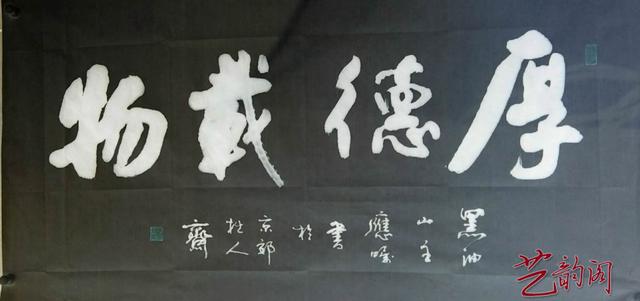 厚德載物
黑油
山主
應嘱
書
於
京郊
人
齋
艺韵阁